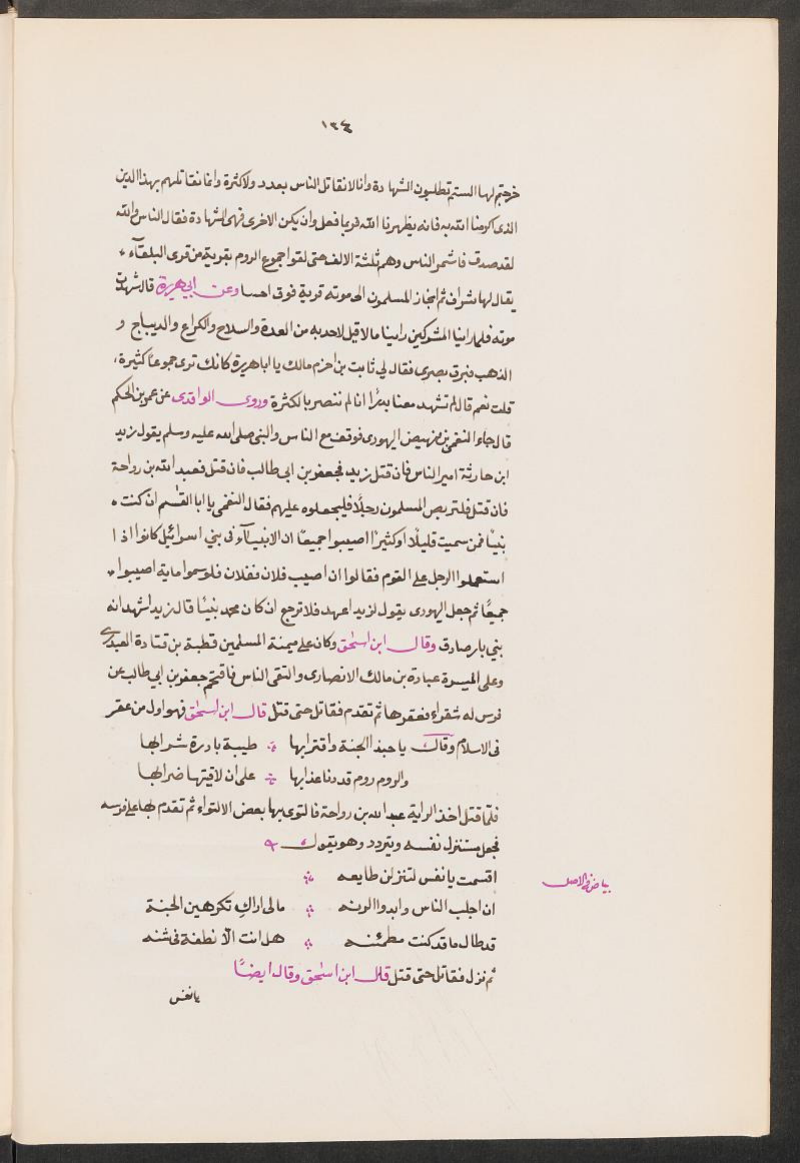 ١٣٤
خرجتم لها الستم تطلبون الشهادة وانا لا نقاتل الناس بعدد ولا كثرة وانما نقاتلهم بهذا الدين
الذي اكرمنا الله به فانه يظهرنا الله فربما فعل وان يكن الاخرى فهي الشهادة فقال الناس والله
لقد صدق فانشمر الناس وهم ثلثة الاف حتى لقوا جموع الروم بقرية من قرى البلقآء
يقال لها شراف ثم انحاز المسلمون الى موته قرية فوق احسا وعن ابي هريرة قال شهدت
موته فلما راينا المشركين راينا ما لا قبل لاحد به من العدة والسلاح والكراع والديباج و
الذهب فبرق بصري فقال لي ثابت بن اخرم مالك يا ابا هريرة كانك ترى جموعًا كثيرة،
قلت نعم قال لم تشهد معنا بدرًا انا لم ننصر بالكثرة وروى الواقدي عن عمر بن الحكم
قال جاء النعمى بن مهيض اليهودى فوقف مع الناس والنبي صلى الله عليه وسلم يقول زيد
ابن حارثة امير الناس فان قتل زيد فجعفر بن ابي طالب فان قتل فعبد الله بن رواحة
فان قتل فليرتض المسلمون رجلًا فليجعلوه عليهم فقال النعمى يا ابا القسم ان كنت
نبيًا فمن سميت قليلًا او كثيرًا اصيبوا جميعًا ان الانبيآء في بني اسرائيل كانوا اذا
استعملوا الرجل على القوم فقالوا ان اصيب فلان ففلان فلو سموا ماية اصيبوا
جميعًا ثم جعل اليهودى يقول لزيد اعهد فلا ترجع ان كان محمد نبيًا قال زيد اشهد انه
نبي بار صادق وقال ابن اسحق وكان على ميمنة المسلمين قطبة بن قتادة العبدري
وعلى الميسرة عبادة بن مالك الانصارى والتقى الناس فاقتحم جعفر بن ابي طالب عن
فرس له شقراء فعقرها ثم تقدم فقاتل حتى قتل قال ابن اسحق فهو اول من عقر
في الاسلام وقال يا حبذ الجنة واقترابها طيبة باردة شرابها
والروم روم قد دنا عذابها على ان لاقيتها ضرابها
فلما قتل اخذ الراية عبد الله بن رواحة فالتوى بها بعض الالتواء ثم تقدم بها على فرسه
فجعل يستنزل نفسه ويتردد وهو يقول
اقسمت يا نفس لتنزلن طايعه
بياض في الاصل
ان اجلب الناس وابدوا الرنه مالي اراكِ تكرهين الجنة
قد طال ما قد كنت مطمئنه هل انت الا نطفة في شنه
ثم نزل فقاتل حتى قتل قال ابن اسحق وقال ايضًا
يا نفس